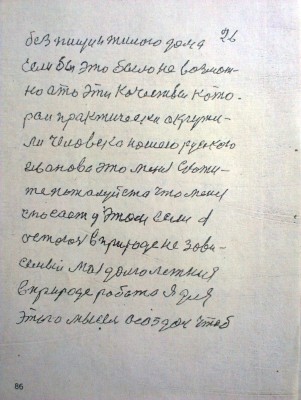 26
без пищи и жилого дома
если бы это было не возмож-
но а то эти качества кото-
рой практически окружи-
ли человека нашего русского
Иванова это меня Скажи-
те пожалуйста что меня
касает у этом если я
остаюсь в природе не зави-
семый Моя долголетния
в природе работа Я для
этого мысел создан чтоб
86